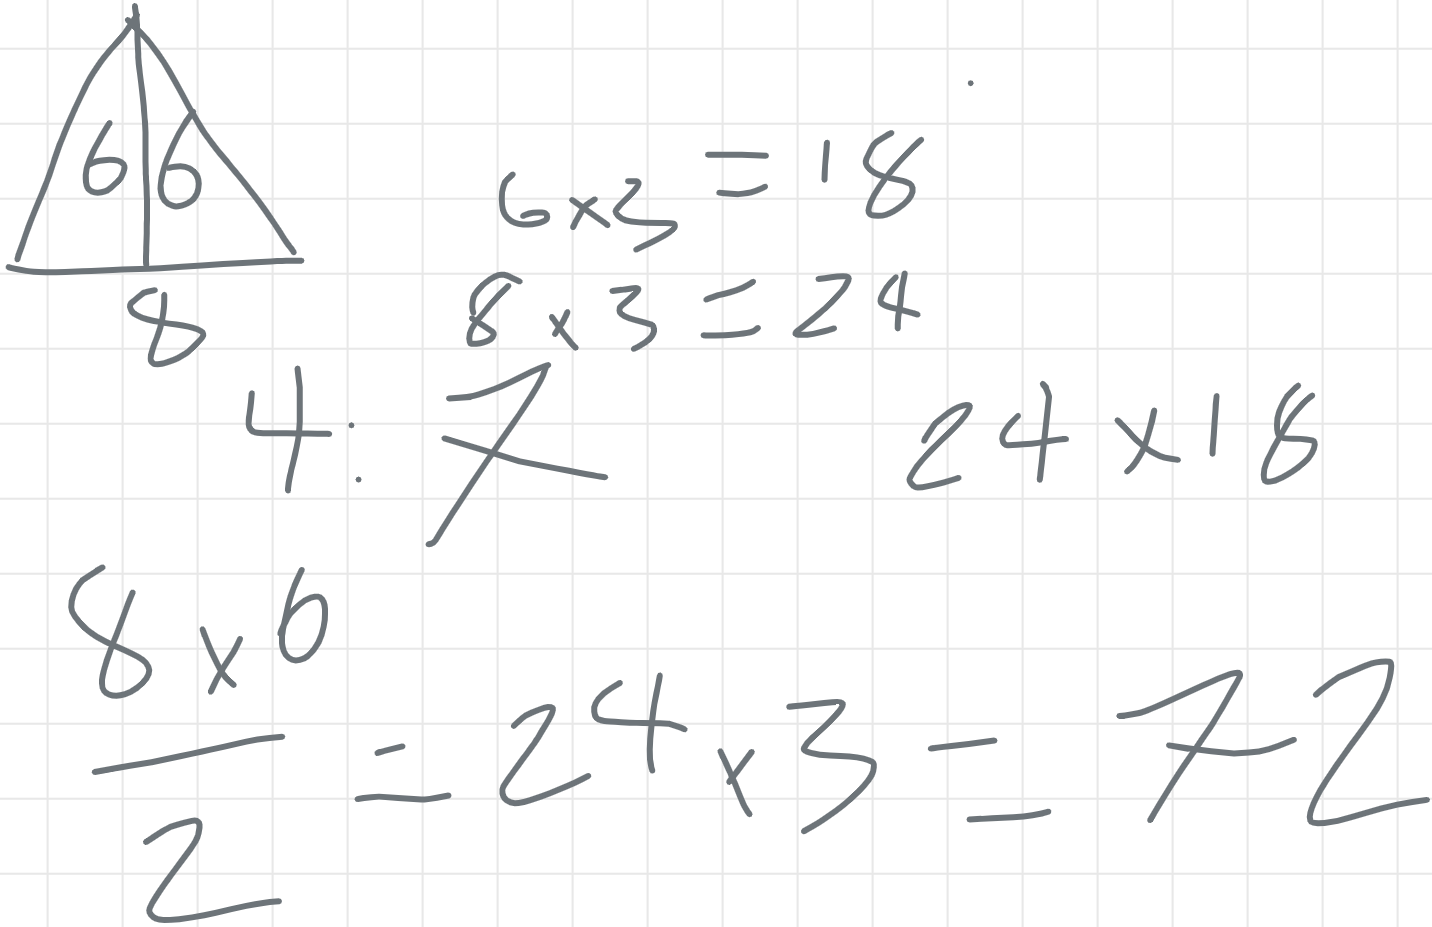 6 6
8
6 x 3 = 18
8 x 3 = 24
4 : 7
24 x 18
8 x 6
2
= 24 x 3 = 72